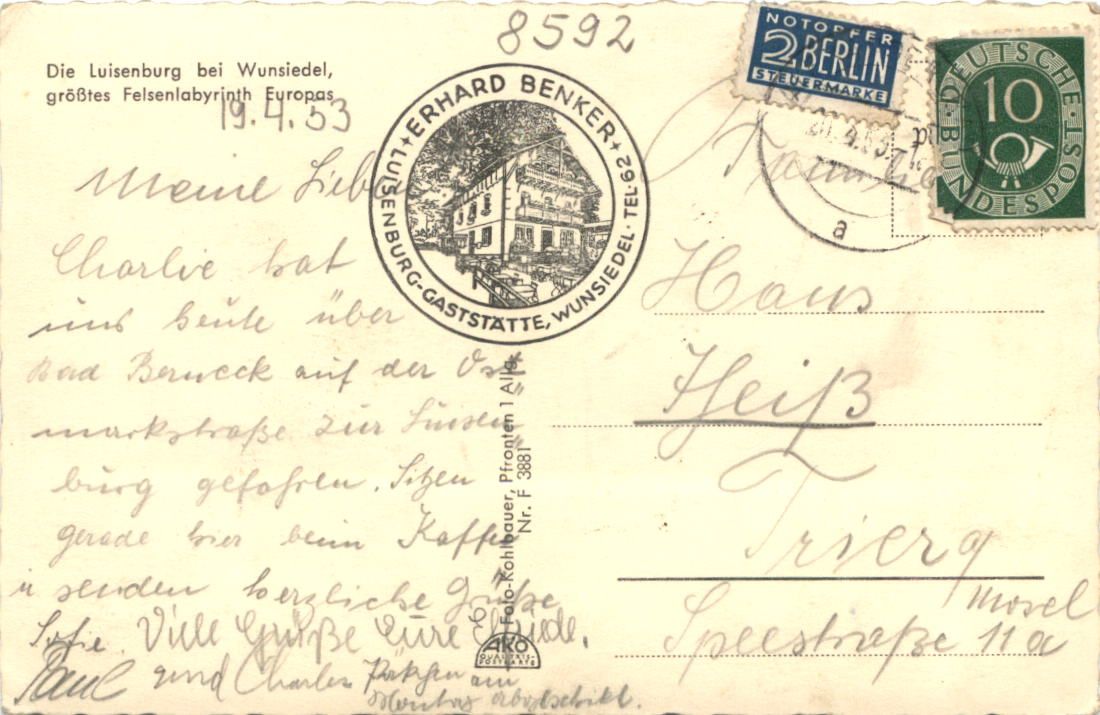 8592
Die Luisenburg bei Wunsiedel,
größtes Felsenlabyrinth Europas
19.4.53
Meine Lieben
Charlie hat
uns heute über
Bad Berneck auf der Ost
markstraße zur Luisen
burg gefahren. Sitzen
gerade hier beim Kaffee
u senden herzliche Grüße
Sofie. Viele Grüße Eure
Paul und Charles
am
Montag abgeschickt.
+ ERHARD BENKER +
LUISENBURG-GASTSTÄTTE, WUNSIEDEL · TEL·62
Foto-Kohlbauer, Pfronten 1 Allg.
Nr. F 3881
AKO
QUALITÄTS-
POSTKARTE
NOTOPFER
2 BERLIN
STEUERMARKE
DEUTSCHE
10
BUNDESPOST
a
Familie
Hans
Heiß
Trier
Mosel
Speestraße 11a